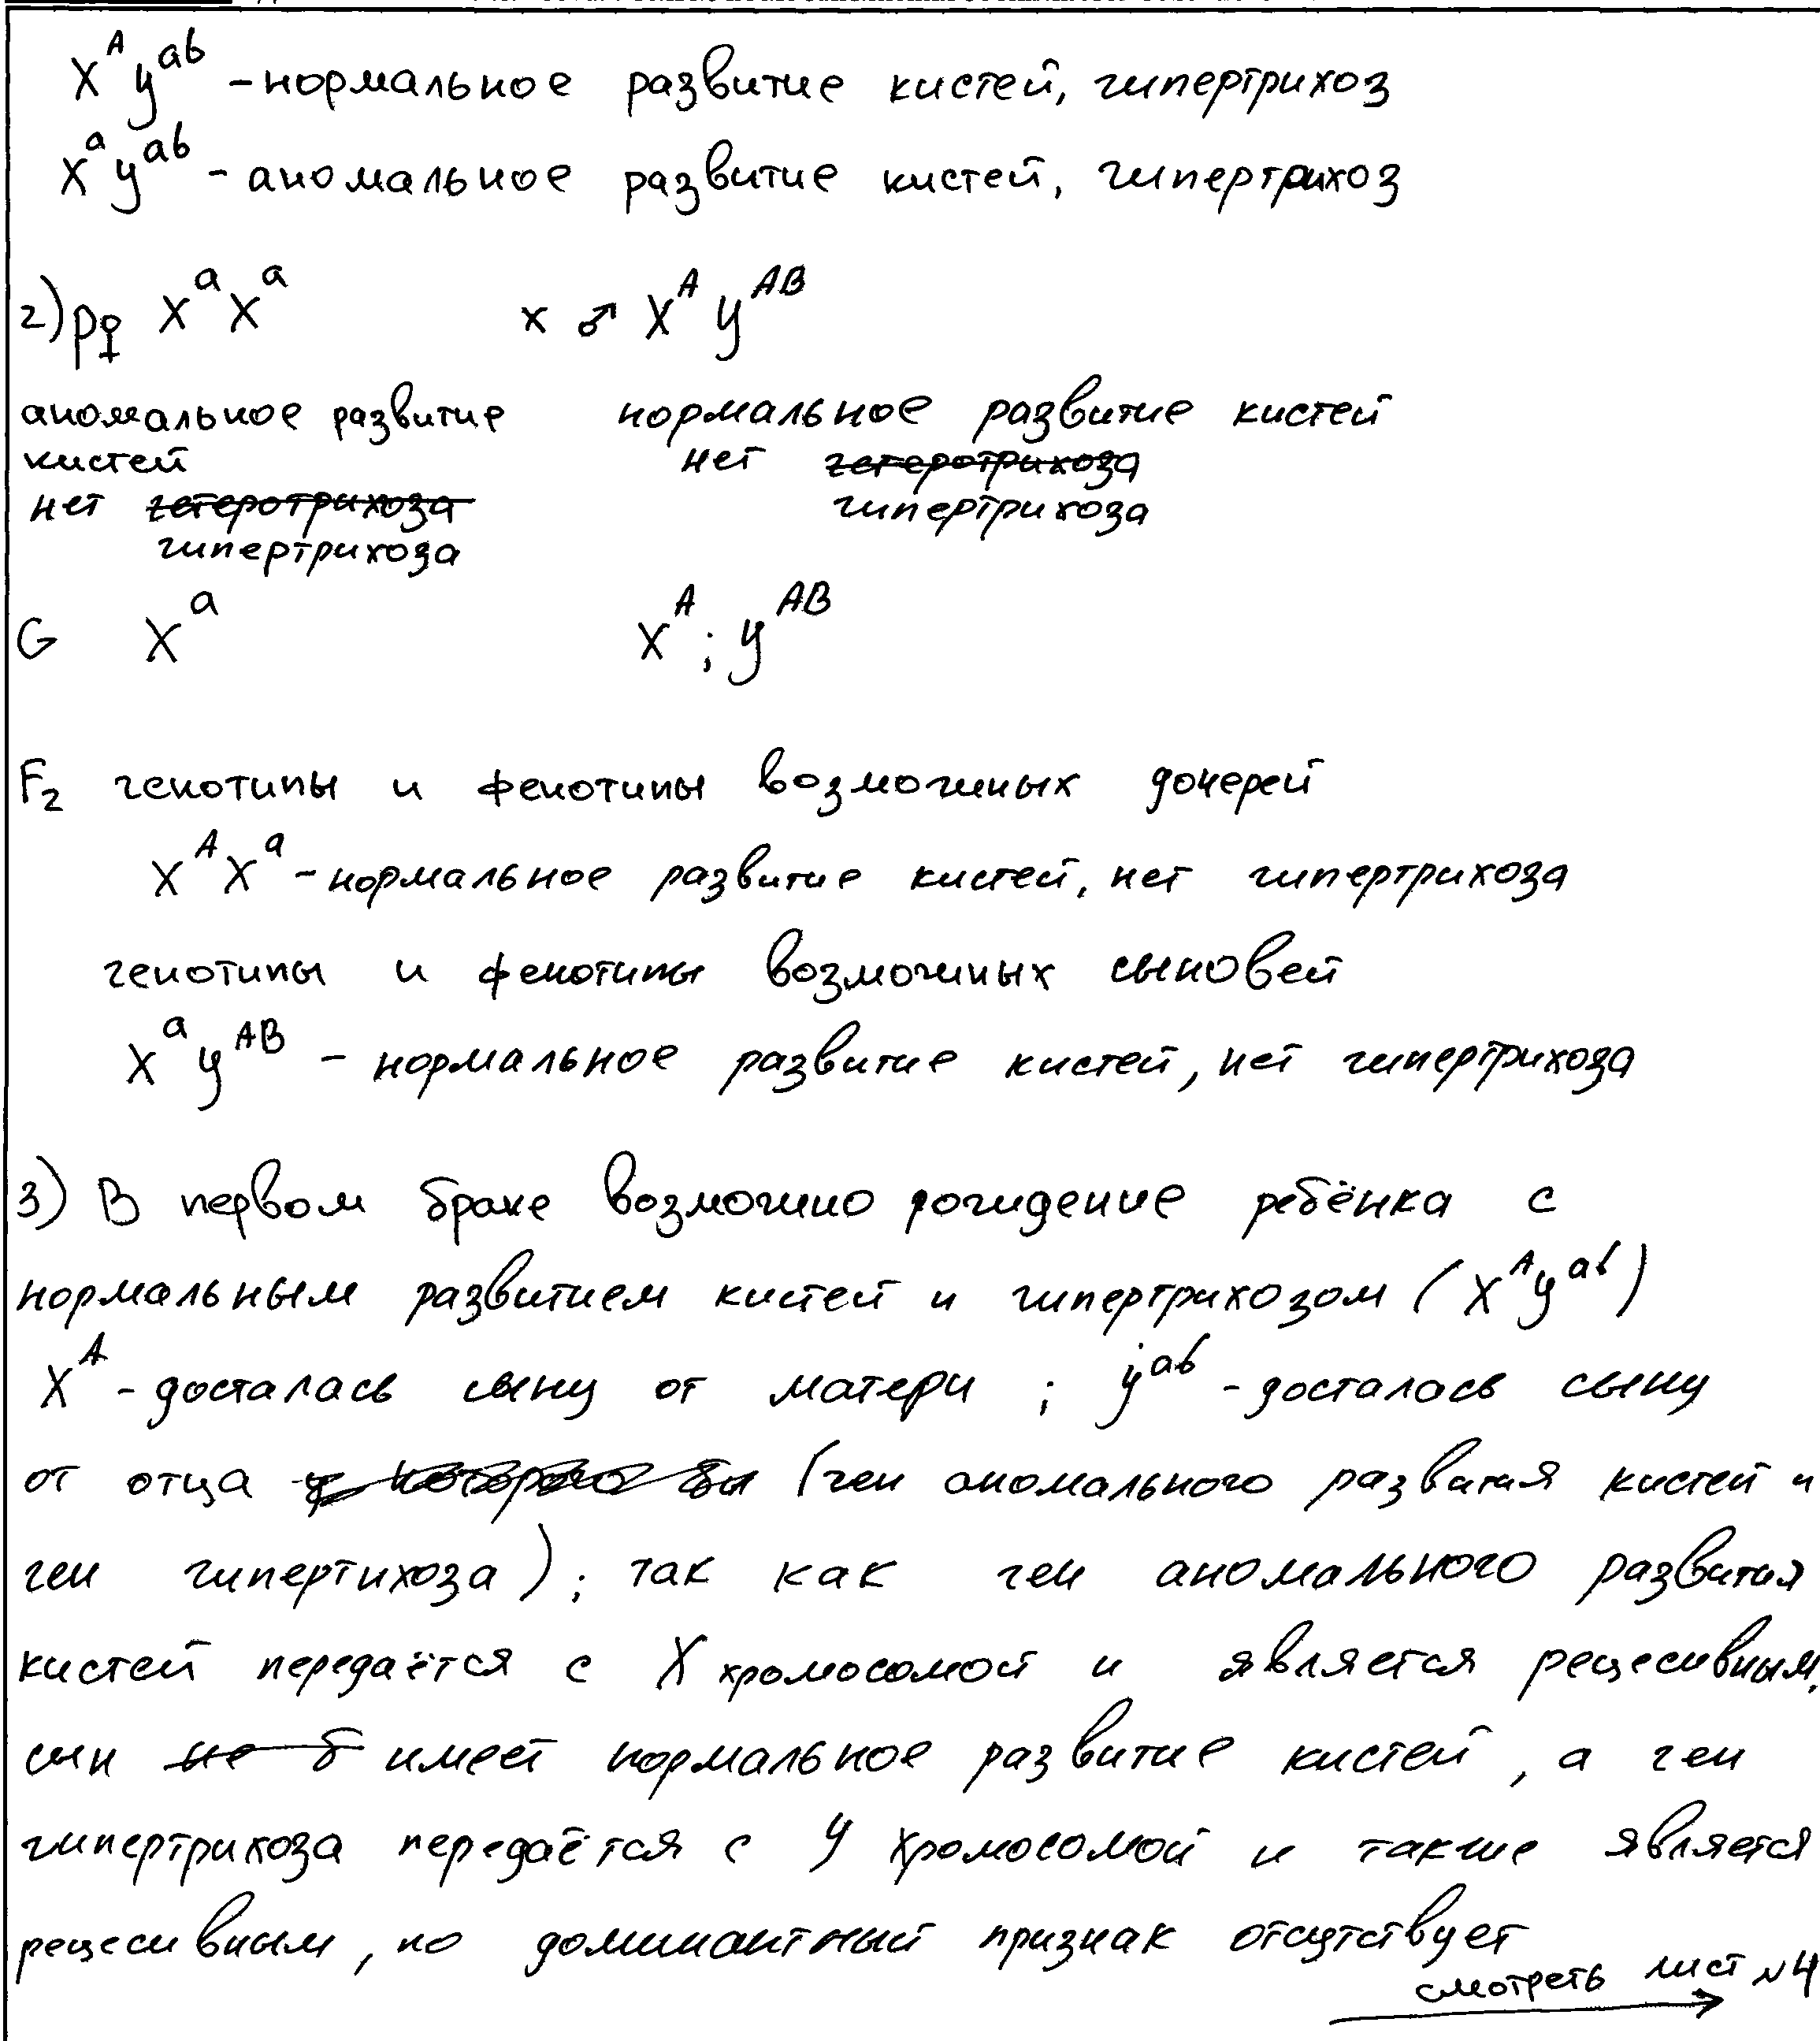 X^A y^ab – нормальное развитие кистей, гипертрихоз
X^a y^ab – аномальное развитие кистей, гипертрихоз
2) P♀ X^a X^a x ♂ X^A y^AB
аномальное развитие нормальное развитие кистей
кистей нет гетеротрихоза
нет гетеротрихоза гипертрихоза
гипертрихоза
G X^a X^A; y^AB
F2 генотипы и фенотипы возможных дочерей
X^A X^a – нормальное развитие кистей, нет гипертрихоза
генотипы и фенотипы возможных сыновей
X^a y^AB – нормальное развитие кистей, нет гипертрихоза
3) В первом браке возможно рождение ребёнка с
нормальным развитием кистей и гипертрихозом (X^A y^ab)
X^A – досталась сыну от матери ; y^ab – досталась сыну
от отца у которого бы (ген аномального развития кистей и
ген гипертихоза); так как ген аномального развития
кистей передаётся с X хромосомой и является рецесивным,
сын не б имеет нормальное развитие кистей, а ген
гипертрихоза передаётся с y хромосомой и также является
рецесивным, но доминантный признак отсутствует
смотреть лист №4